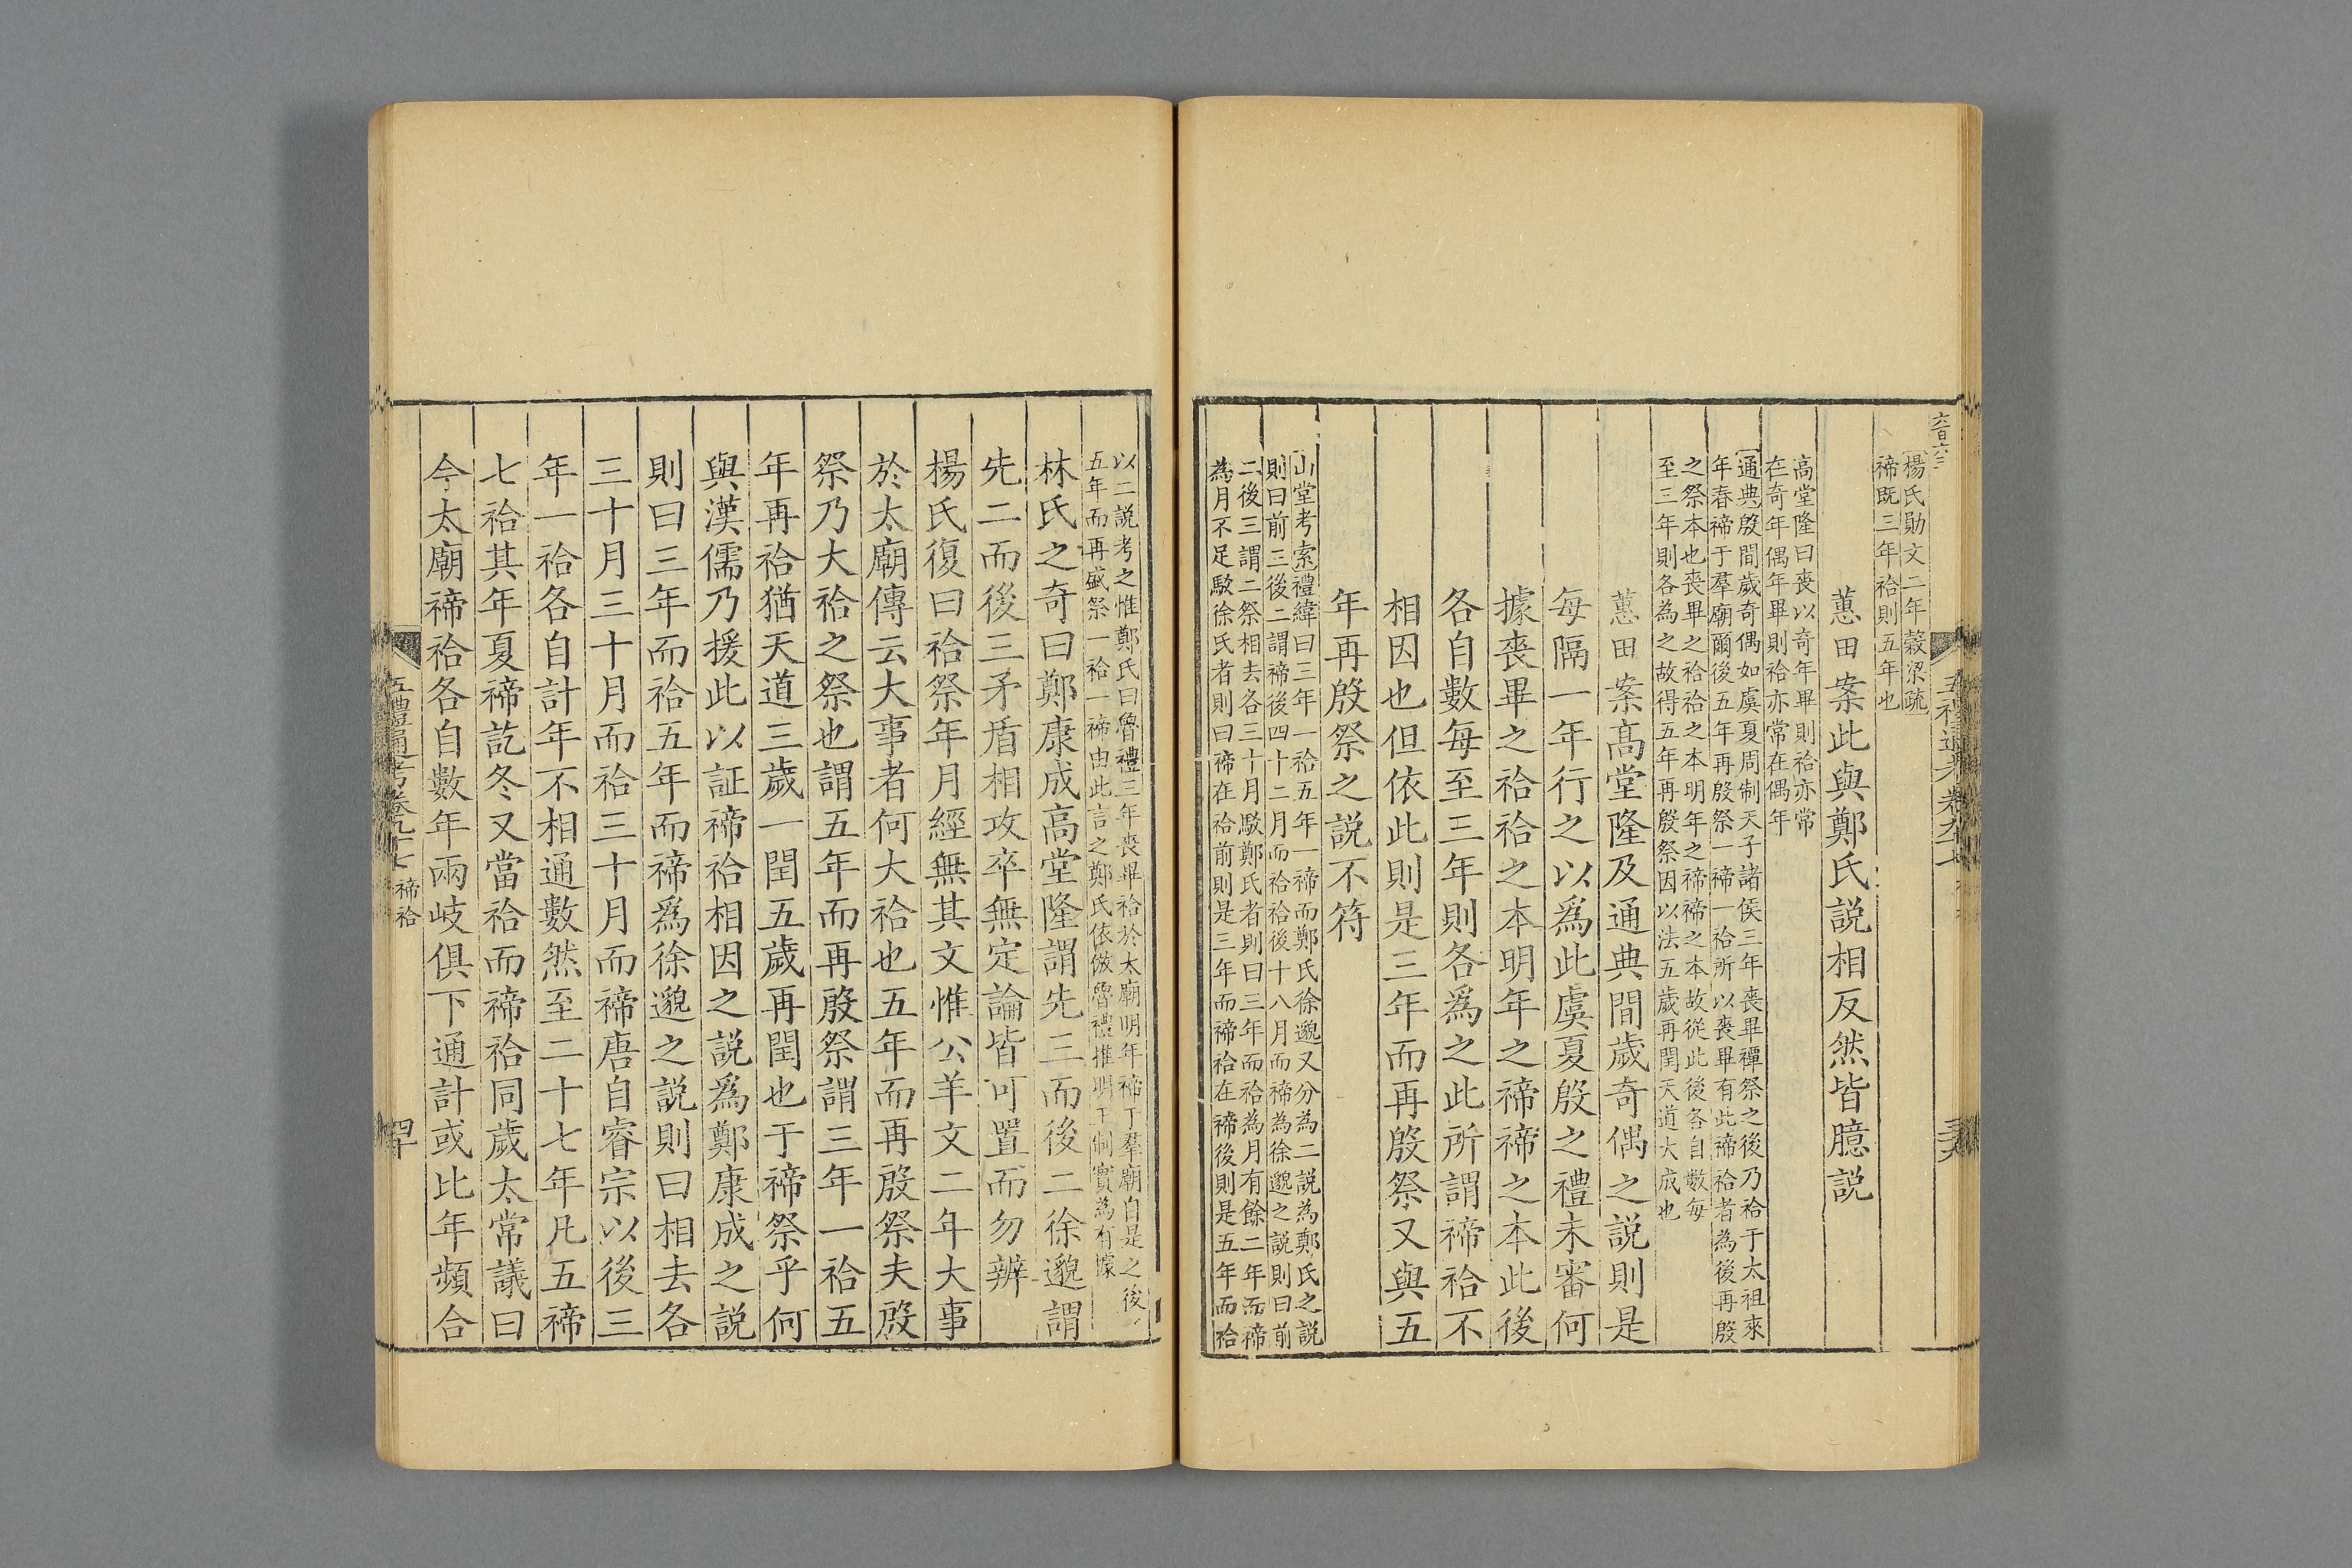 楊氏勛文二年穀梁疏
禘既三年祫則五年也
蕙田案此與鄭氏說相反然皆臆說
高堂隆曰喪以奇年畢則祫亦常
在奇年偶年畢則祫亦常在偶年
通典殷間歲奇偶如虞夏周制天子諸侯三年喪畢禫祭之後乃祫于太祖來
年春禘于羣廟爾後五年再殷祭一禘一祫所以喪畢有此禘祫者為後再殷
之祭本也喪畢之祫祫之本明年之禘禘之本故從此後各自數每
至三年則各為之故得五年再殷祭因以法五歲再閏天道大成也
蕙田案高堂隆及通典間歲奇偶之說則是
每隔一年行之以爲此虞夏殷之禮未審何
據喪畢之祫祫之本明年之禘禘之本此後
各自數每至三年則各爲之此所謂禘祫不
相因也但依此則是三年而再殷祭又與五
年再殷祭之說不符
山堂考索禮緯曰三年一祫五年一禘而鄭氏徐邈又分為二說為鄭氏之說
則曰前三後二謂禘後四十二月而祫祫後十八月而禘為徐邈之說則曰前
二後三謂二祭相去各三十月駮鄭氏者則曰三年而祫為月有餘二年而禘
為月不足駮徐氏者則曰禘在祫前則是三年而禘祫在禘後則是五年而祫
以二說考之惟鄭氏曰魯禮三年喪畢祫於太廟明年禘于羣廟自是之後
五年而再盛祭一祫一禘由此言之鄭氏依倣魯禮推明王制實為有據
林氏之奇曰鄭康成高堂隆謂先三而後二徐邈謂
先二而後三矛盾相攻卒無定論皆可置而勿辨
楊氏復曰祫祭年月經無其文惟公羊文二年大事
於太廟傳云大事者何大祫也五年而再殷祭夫殷
祭乃大祫之祭也謂五年而再殷祭謂三年一祫五
年再祫猶天道三歲一閏五歲再閏也于禘祭乎何
與漢儒乃援此以証禘祫相因之說爲鄭康成之說
則曰三年而祫五年而禘爲徐邈之說則曰相去各
三十月三十月而祫三十月而禘唐自睿宗以後三
年一祫各自計年不相通數然至二十七年凡五禘
七祫其年夏禘訖冬又當祫而禘祫同歲太常議曰
今太廟禘祫各自數年兩岐俱下通計或比年頻合
五禮通考卷九十七 禘祫